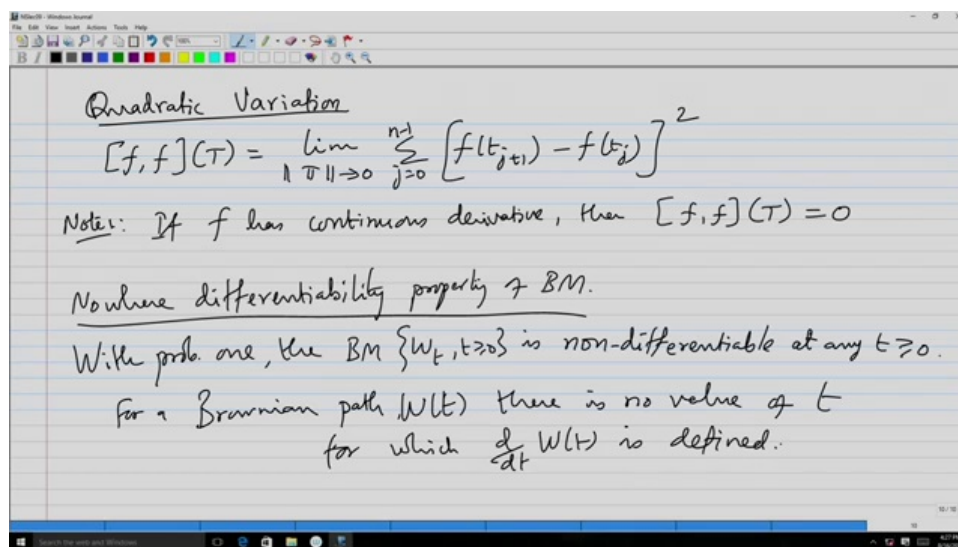 NSlec09 - Windows Journal
File Edit View Insert Actions Tools Help
B I
Quadratic Variation
[f,f](T) = lim ||Π||→0 Σ j=0 n-1 [f(t_{j+1}) - f(t_j)]^2
Note 1: If f has continuous derivative, then [f,f](T) = 0
Nowhere differentiability property of BM.
With prob. one, the BM {W_t, t≥0} is non-differentiable at any t ≥ 0.
For a Brownian path W(t) there is no value of t
for which d/dt W(t) is defined.
10 / 10
10
Search the web and Windows
4:27 PM